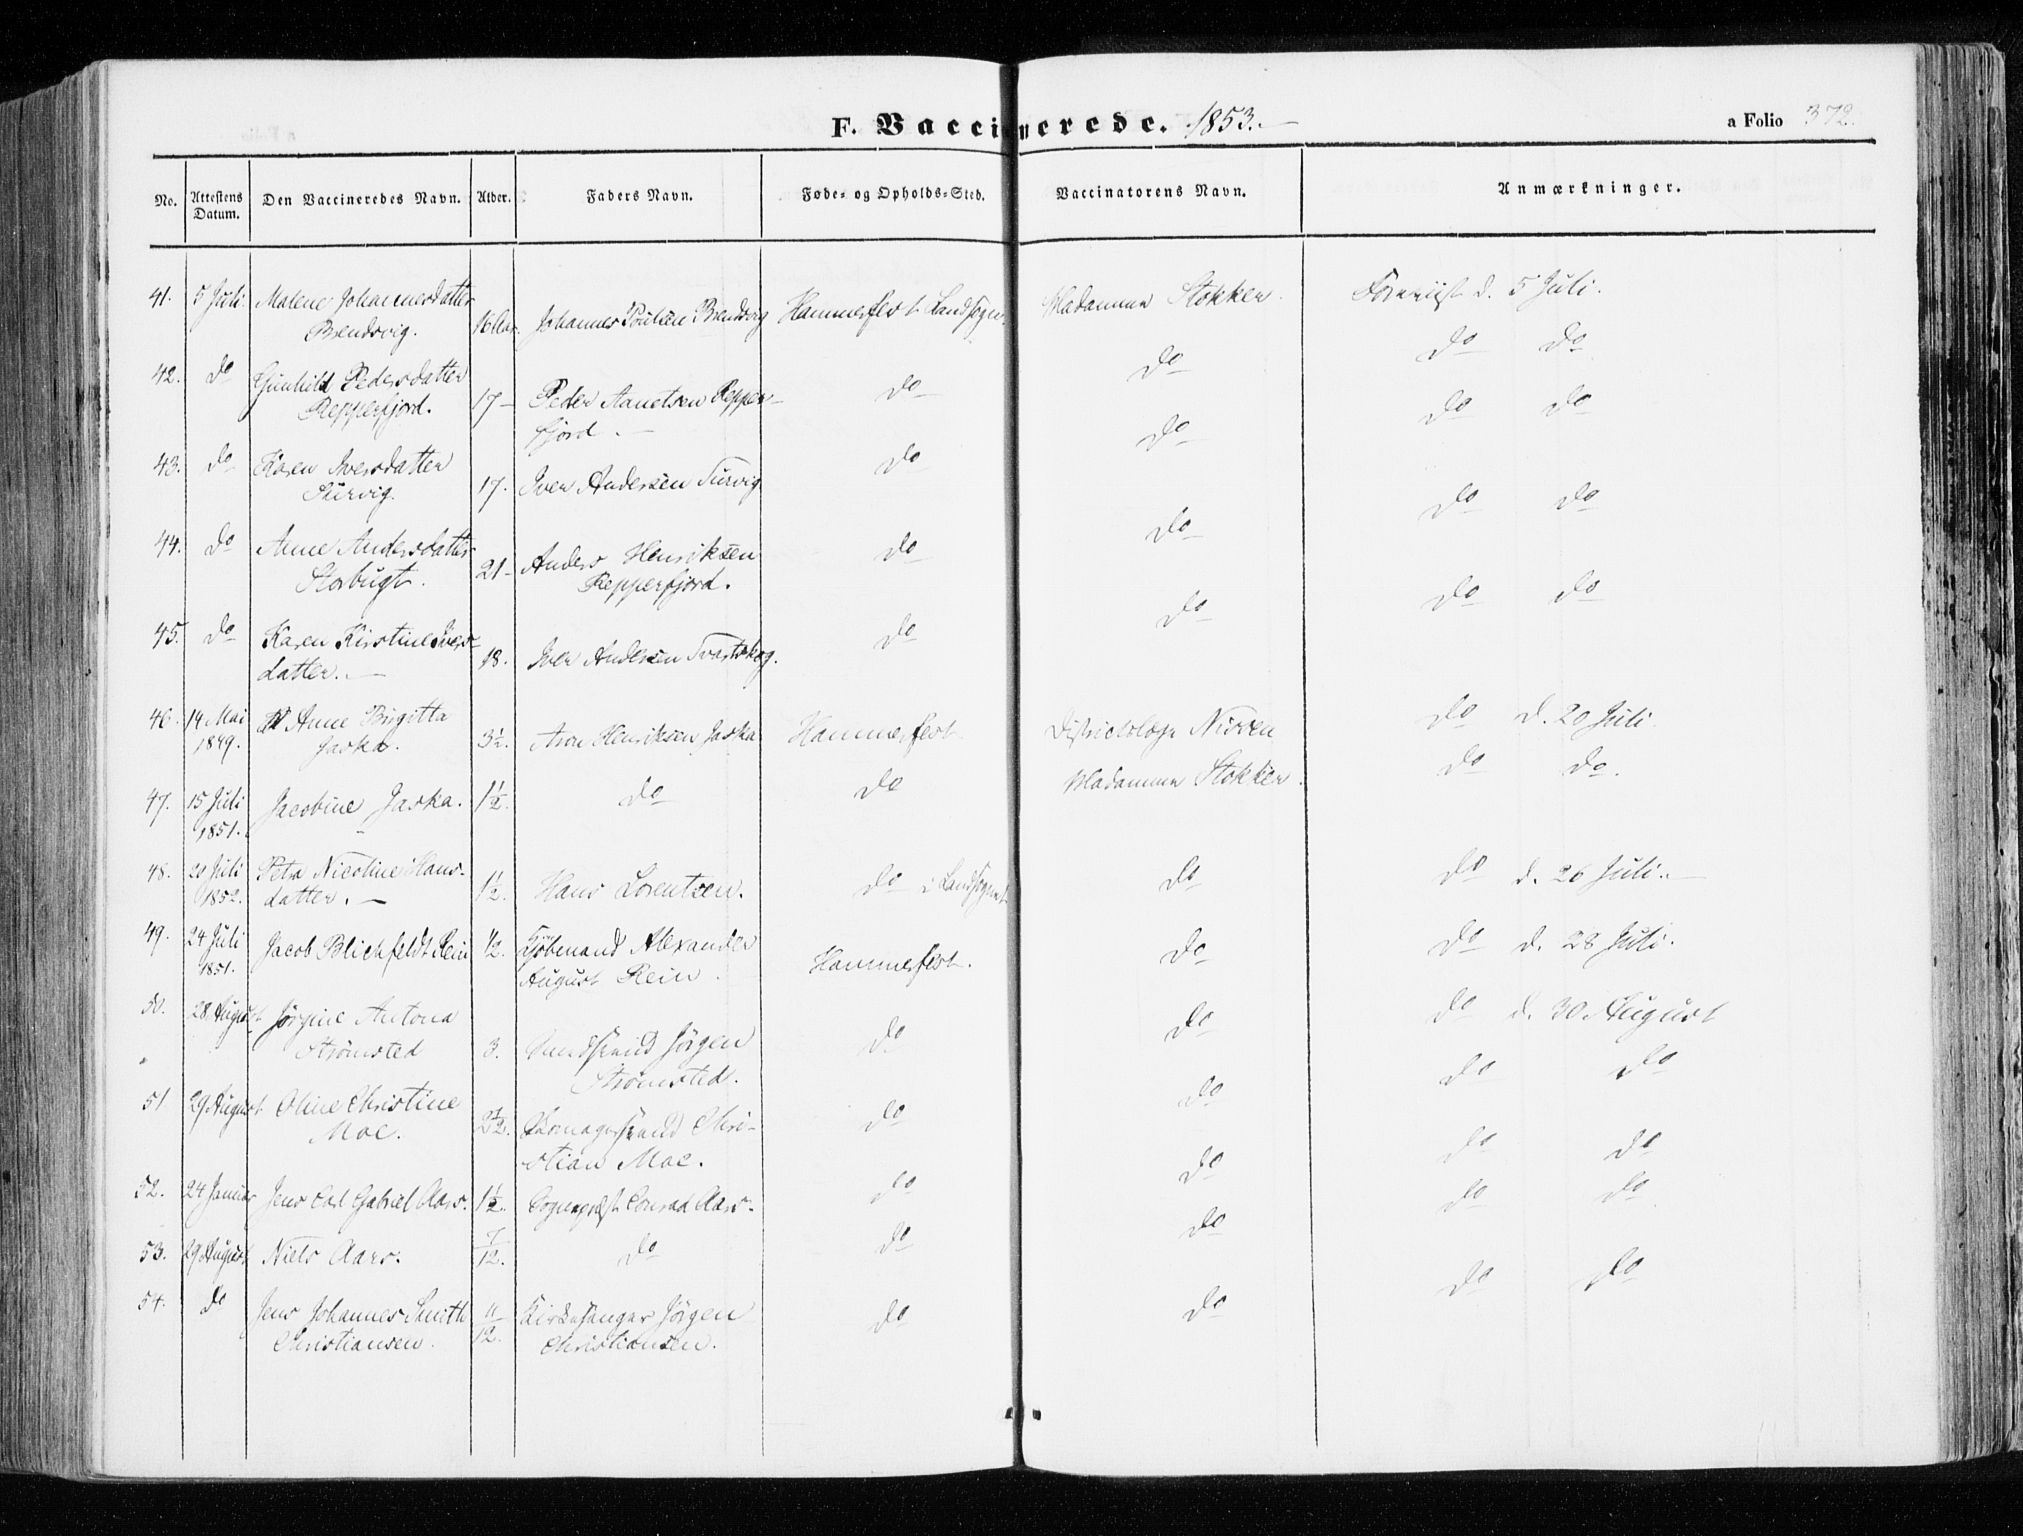 F. Vaccinerede. 1853. a Folio 372.
No. Attestens Datum. Den Vaccineredes Navn. Alder. Faders Navn. Føde- og Opholds-Sted. Vaccinatorens Navn. Anmærkninger.
41. 5 Juli Malene Johannesdatter
Brendsvig. 16 Aar. Johannes Poulsen Brendsvig Hammerfest Landsogn Madamme Stokker Foreviist d. 5 Juli.
42. do Gunhild Pedersdatter
Repperfjord. 17 Peder Repper-
fjord. do do do do
43. do Karen Iversdatter
17. Iver Andersen do do do do
44. do Anne Andersdatter
Storbugt. 21 Anders Henriksen
Repperfjord. do do do do
45. do Karen Kirstine Ivers-
datter. 18. Iver Andersen Svartskog. do do do do
46. 14 Mai
1849. Anne Birgitta
Jaska. 3½. Aron Henriksen Jaska Hammerfest Districtslæge Nissen do d. 20 Juli
47. 15 Juli
1851. Jacobine Jaska. 1½. do do Madamme Stokker. do do.
48. 20 Juli
1852. Petra Nicoline Hans-
datter. 1½. Hans Lorentsen. do i Landsognet do do d. 26 Juli.
49. 24 Juli
1851. Jacob Blichfeldt Rein ½. Kjøbmand Alexander
August Rein. Hammerfest. do do d. 28 Juli.
50. 28 August Jørgine Antona
Strømsted 3. Jørgen
Strømsted. do do do d. 30 August
51 29 August Oline Christine
Moe. 2½. Chri-
stian Moe. do do do do
52. 24 Januar Jens Carl Gabriel Aars. 1½. Sognepræst Conrad Aars. do do do do
53. 29 August Niels Aars. 7/12. do do do do do
54. do Jens Johannes Smith
Christiansen. 11/12. Kirkesanger Jørgen
Christiansen. do do do do